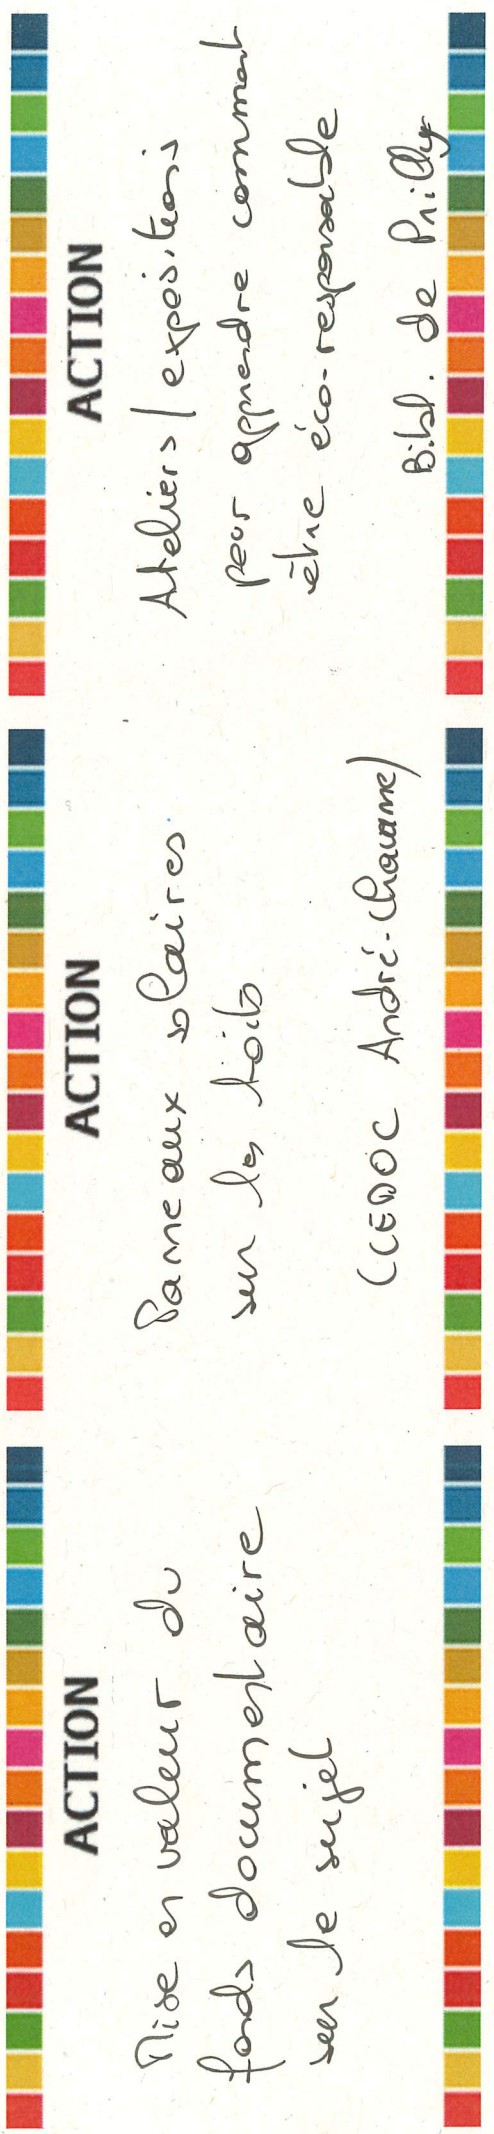 ACTION
Mise en valeur du
fonds documentaire
sur le sujet
ACTION
Panneaux solaires
sur les toits
(CEDOC André-Chavanne)
ACTION
Ateliers / expositions
pour apprendre comment
être éco-responsable
Bibl. de Prilly